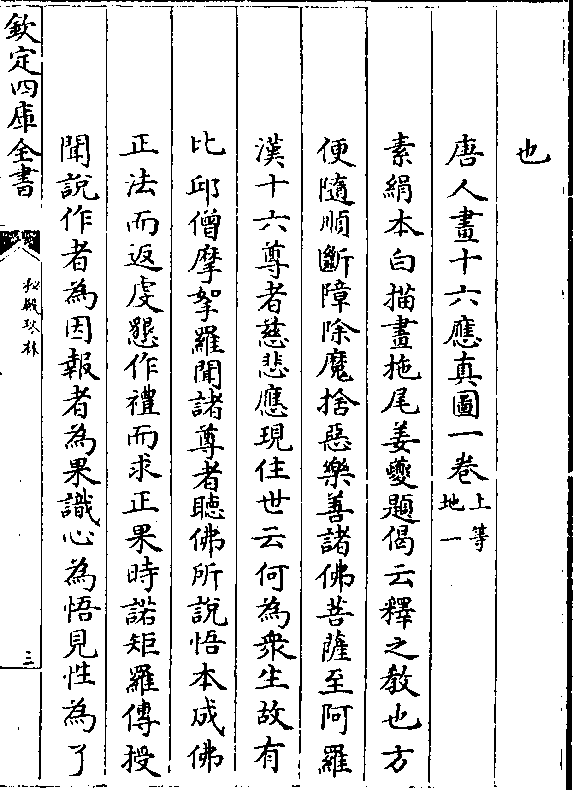 也
唐人畫十六應真圖一卷上等地一
素絹本白描畫拖尾姜夔題偈云釋之教也方
便隨順斷障除魔捨惡樂善諸佛菩薩至阿羅
漢十六尊者慈悲應現住世云何為衆生故有
比邱僧摩拏羅聞諸尊者聽佛所説悟本成佛
正法而返虔懇作禮而求正果時諾矩羅傳授
聞說作者為因報者為果識心為悟見性為了
欽定四庫全書
秘殿珠林
三